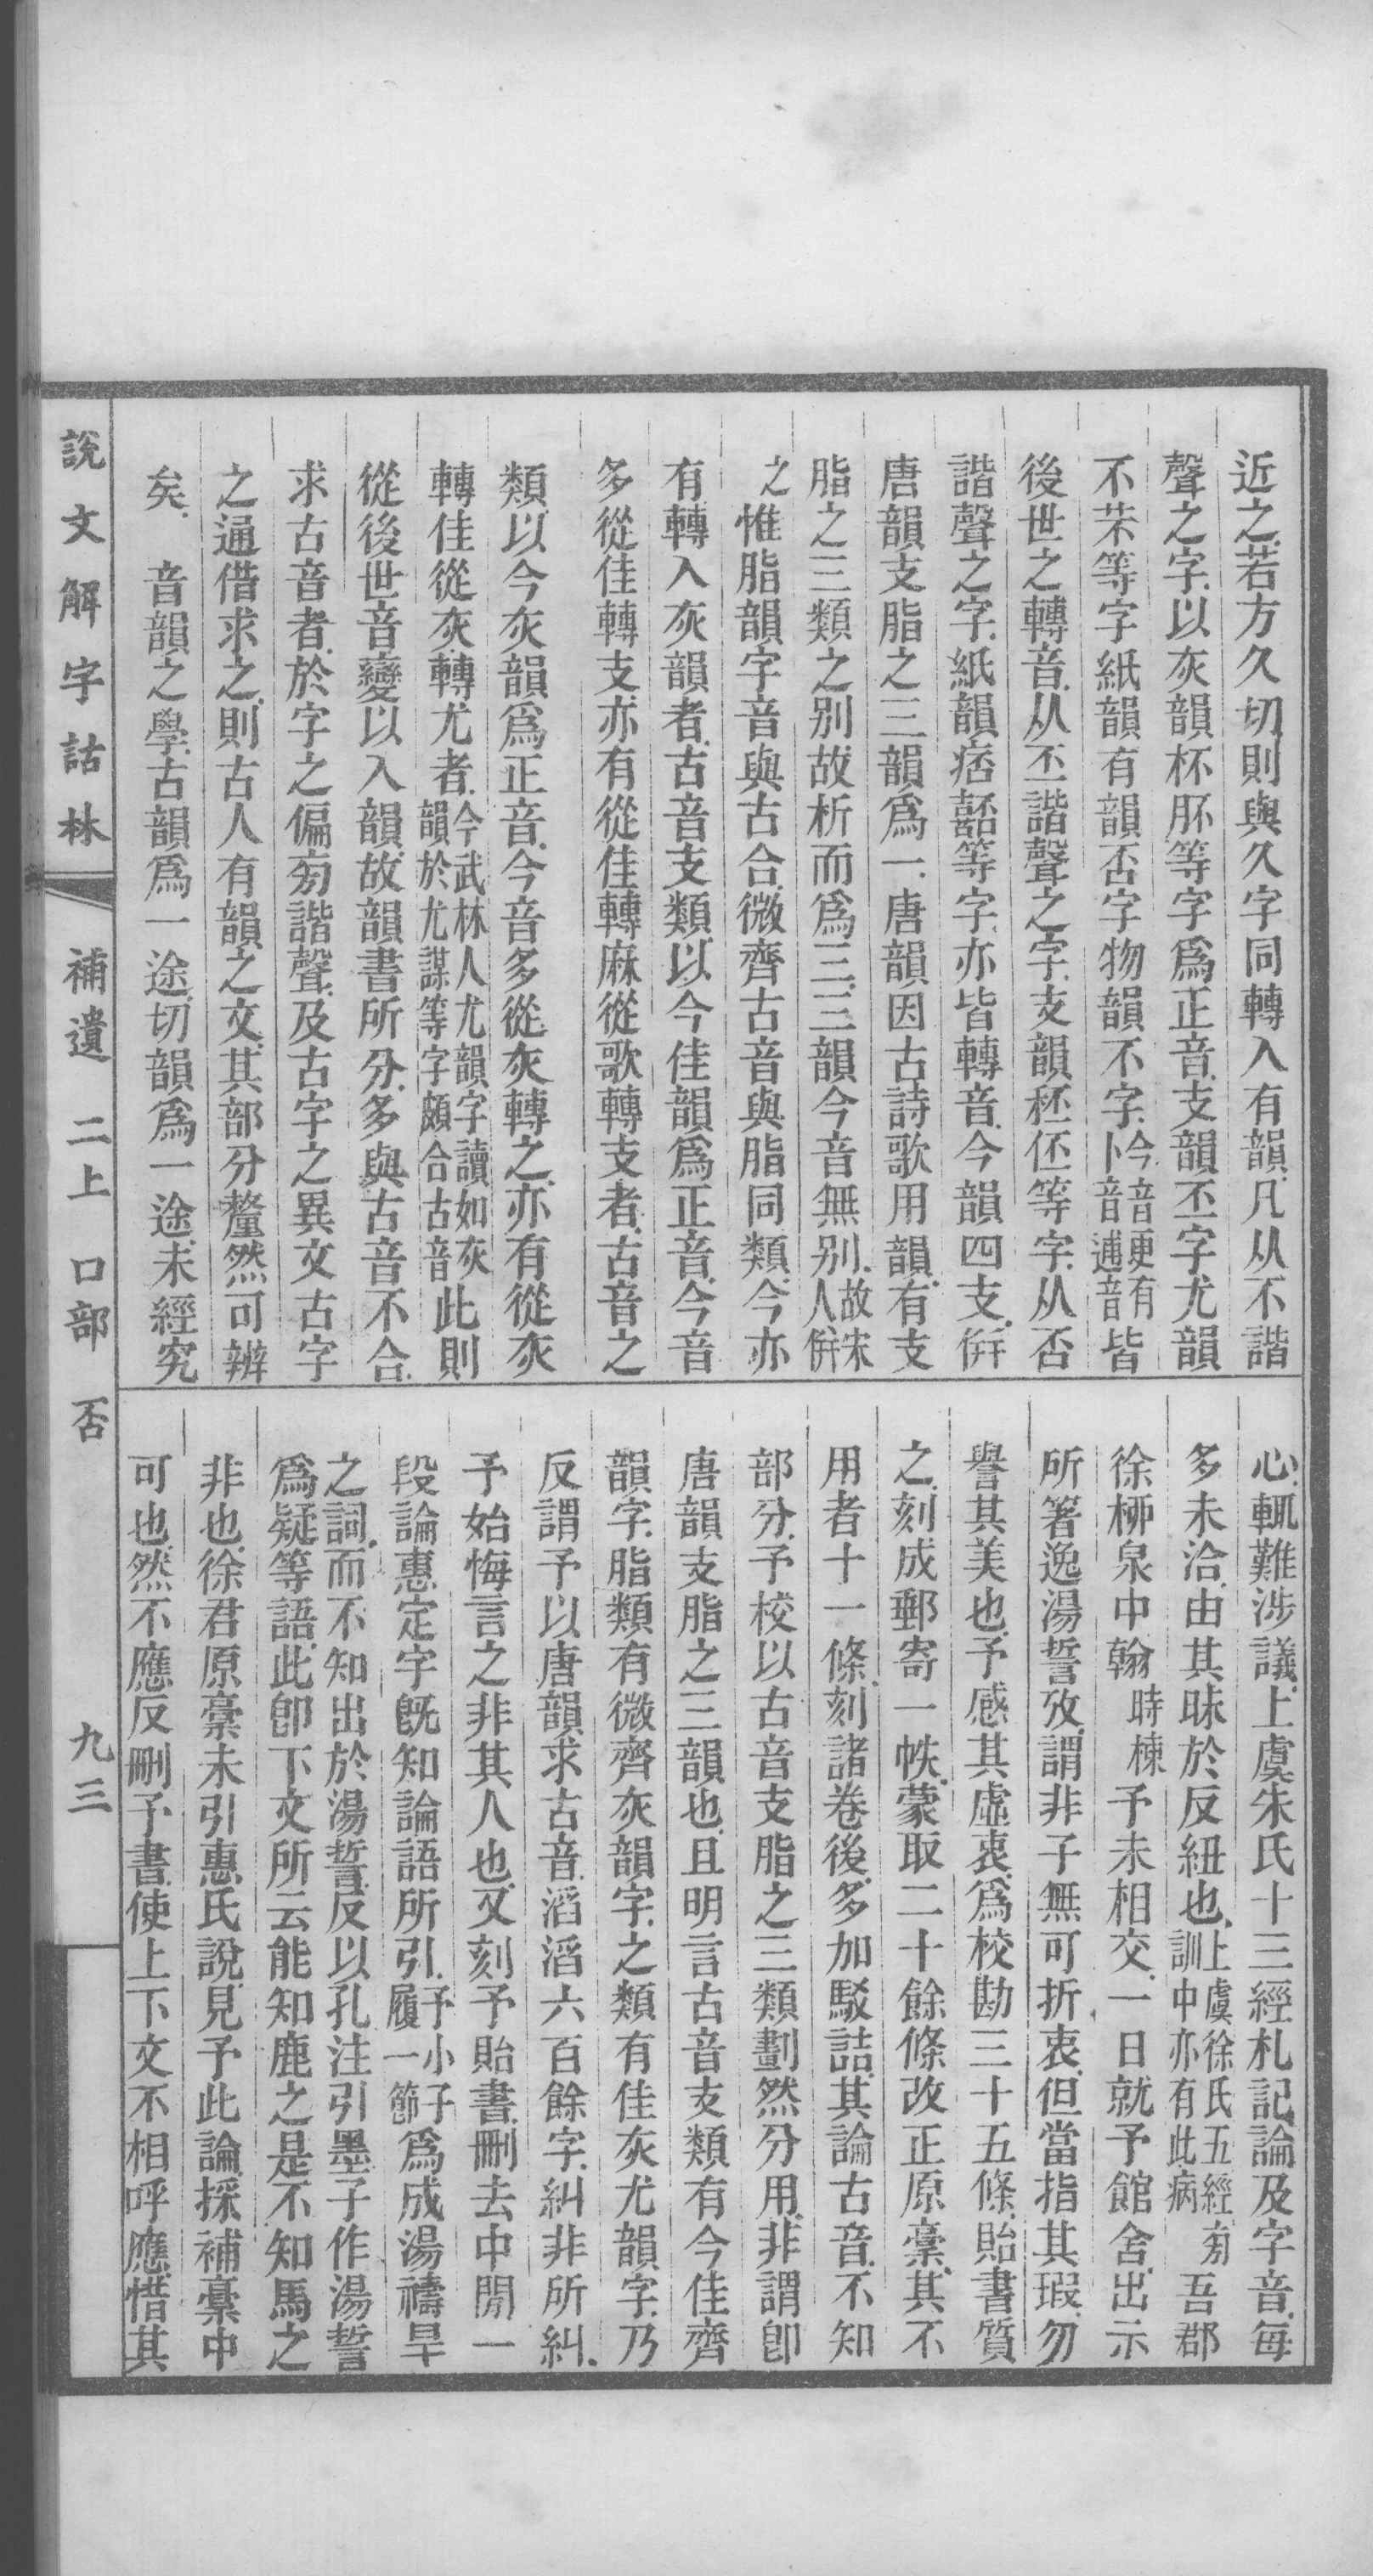 近之.若方久切.則與久字同轉入有韻.凡从不諧
聲之字.以灰韻杯肧等字爲正音.支韻丕字尤韻
不芣等字紙韻有韻否字物韻不字.今音更有卜音逋音皆
後世之轉音.从丕諧聲之字.支韻秠伾等字.从否
諧聲之字.紙韻痞嚭等字.亦皆轉音.今韻四支.倂
唐韻支脂之三韻爲一.唐韻因古詩歌用韻.有支
脂之三類之別故析而爲三.三韻今音無別.故宋人倂
之惟脂韻字音與古合.微齊古音與脂同類.今亦
有轉入灰韻者.古音支類以今佳韻爲正音.今音
多從佳轉支亦有從佳轉麻從歌轉支者.古音之
類.以今灰韻爲正音.今音多從灰轉之.亦有從灰
轉佳從灰轉尤者.今武林人尤韻字讀如灰韻於尤謀等字頗合古音此則
從後世音變以入韻.故韻書所分.多與古音不合.
求古音者.於字之偏㫄諧聲.及古字之異文古字
之通借求之.則古人有韻之文.其部分釐然可辨
矣.　音韻之學.古韻爲一途.切韻爲一途.未經究
心.輒難涉議.上虞朱氏十三經札記.論及字音.每
多未洽.由其昧於反紐也.上虞徐氏五經㫄訓中亦有此病吾郡
徐桺泉中翰時棟予未相交.一日就予館舍.出示
所箸逸湯誓攷.謂非子無可折衷.但當指其瑕.勿
譽其美也.予感其虛衷.爲校勘三十五條.貽書質
之.刻成郵寄一帙.蒙取二十餘條改正原稾.其不
用者十一條.刻諸卷後.多加駁詰.其論古音.不知
部分.予校以古音支脂之三類劃然分用.非謂卽
唐韻支脂之三韻也.且明言古音支類有今佳齊
韻字.脂類有微齊灰韻字.之類有佳灰尤韻字.乃
反謂予以唐韻求古音.滔滔六百餘字.糾非所糾.
予始悔言之非其人也.又刻予貽書.刪去中閒一
段論惠定字旣知論語所引.予小子履一節爲成湯禱旱
之詞.而不知出於湯誓.反以孔注引墨子作湯誓
爲疑等語.此卽下文所云能知鹿之是不知馬之
非也.徐君原稾未引惠氏說.見予此論.採補稾中
可也.然不應反刪予書.使上下文不相呼應.惜其
說文解字詁林　補遺　二上　口部　否　九三